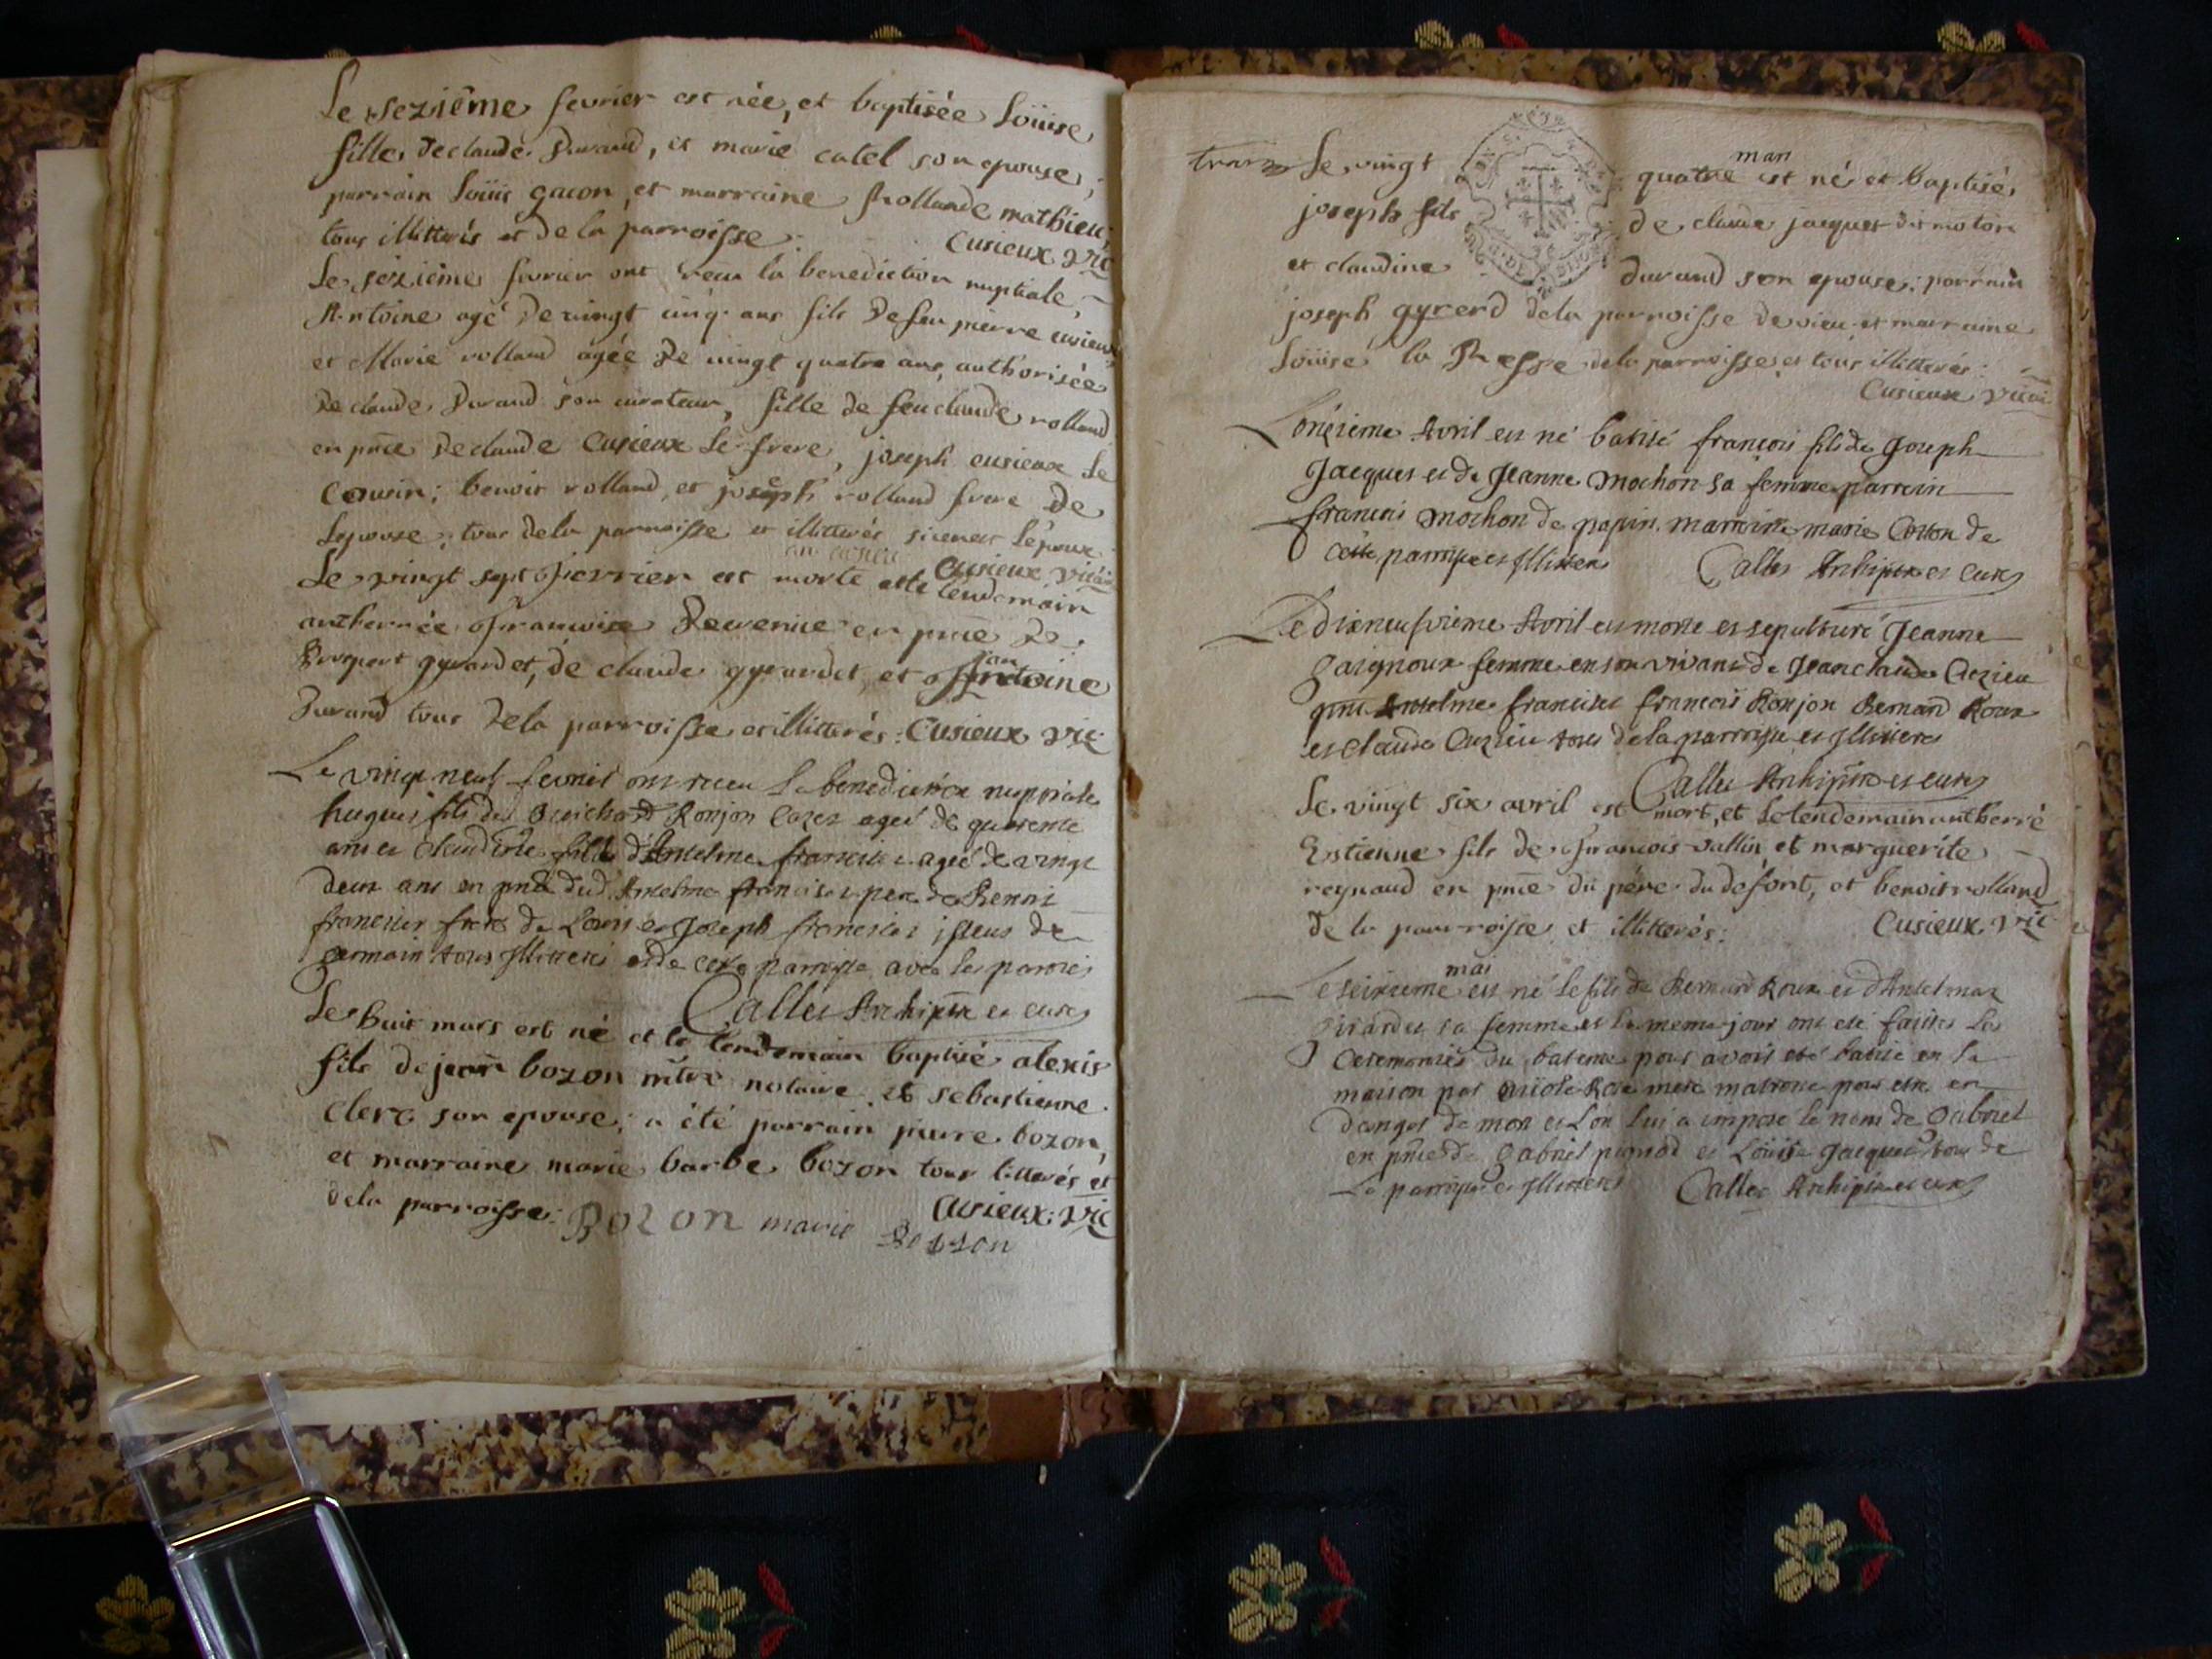 Le sezième fevrier est née, et baptisée Loüise
fille de claude Durand, et marie catel son epouse;
parrain loüis gacon, et marraine Rollande mathieu;
tous illitterés et de la parroisse:
Cusieux vic
Le sezième fevrier ont receu la benediction nuptiale,
Antoine agé de vingt cinq ans fils de feu pierre cusieux
et Marie rolland agée de vingt quatre ans, authorisée
de claude Durand son curateur, fille de feu claude rolland
en pnce de claude Cusieux le frere, joseph cusieux le
Cousin; benoit rolland, et joseph rolland frere de
l'epouse; tous de la parroisse et illitterés
Cusieux vicai
Le vingt sept fevrier est morte et le lendemain
antherrée francoise en pnce de
gyrardet, de claude gyrardet, et antoine
Durand tous de la parroisse et illitterés: Cusieux vic
Le vingt neuf fevrier ont receu la benediction nuptiale
hugues fils de Ronjon agé de quarente
ans et Claudine fille d'Antelme francisce agée de vingt
deux ans en pnce dud. Antelme pere de
frere de Louis et Joseph issus de
germain tous Illitteres et de cette parroisse avec les parties
Callet Archiptre et curé
Le huit mars est né et le lendemain baptisé alexis
fils de jean bozon mtre notaire et sebastienne
clerc son epouse; a été parrain pierre bozon,
et marraine marie barbe bozon tous litterés et
de la parroisse:
Cusieux vic
Bozon marie Bozon
Le vingt quatre mars est né et baptisé
joseph fils de claude jacques dit moton
et claudine durand son epouse; parrain
joseph gyrerd de la parroisse de vieu et marraine
Loüise la de la parroisse et tous illitterés:
Cusieux vicai
L'onzieme Avril est né batisé françois fils de Joseph
Jacques et de Jeanne Mochon sa femme parrein
francois mochon de papin marreine marie Cotton de
cette parroisse et Illitterés Callet Archiptre et curé
Le dixneufvieme Avril est morte et sepulturé Jeanne
femme en son vivant de Jean claude Cuzieu
pnts Antelme francois Ronjon Bernard Roux
et claude Cuzieu tous de la parroisse et Illitterés
Callet Archiptre et curé
Le vingt six avril est mort, et le lendemain antherré
Estienne fils de francois vallin et marguerite
reynaud en pnce du père du defont, et benoit rolland
de la parroisse et illitterés: Cusieux vic
Le seizieme mai est né le fils de Bernard Roux et d'Antelmaz
Girardet sa femme et le meme jour ont eté faites les
ceremonies du bateme pour avoir eté batisé en la
maison par nicole mere matrone pour etre en
danger de mort et l'on lui a imposé le nom de Gabriel
en pnce de Gabriel et Loüise Jacques tous de
la parroisse et Illitterés Callet Archiptre et curé